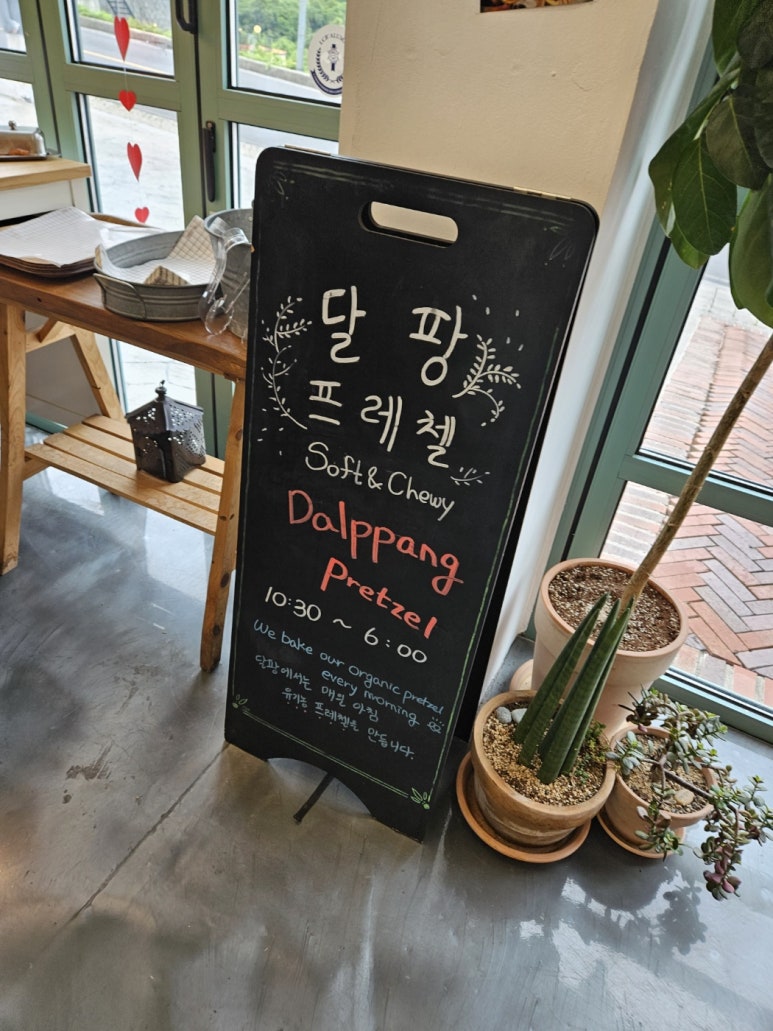 달팡
프레첼
Soft & Chewy
Dalppang
Pretzel
10:30 ~ 6:00
We bake our organic pretzel
every morning
달팡에서는 매일 아침
유기농 프레첼을 만듭니다.